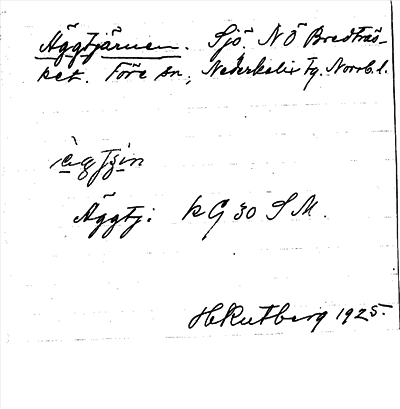 Äggtjärnen. Sjö. NÖ Bredträs-
ket. Töre sn, Nederkalix tg. Norrb. l.
Äggtj: kG 30 SM.
HRutberg 1925.